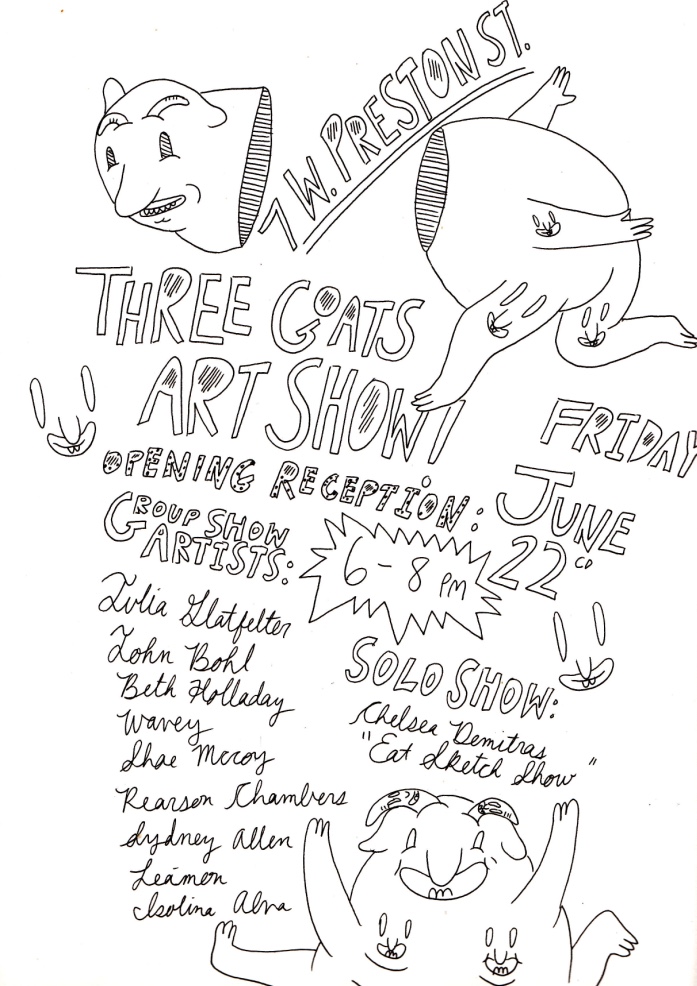 7 W. PRESTON ST.
THREE GOATS
ART SHOW!
FRIDAY
JUNE
22
OPENING RECEPTION:
6-8 PM
GROUP SHOW
ARTISTS:
Julia Glatfelter
John Bohl
Beth Holladay
Wavey
Shae McCoy
Pearson Chambers
Sydney Allen
Leámon
Isolina Alva
SOLO SHOW:
Chelsea Demitras
"Eat Sketch Show"